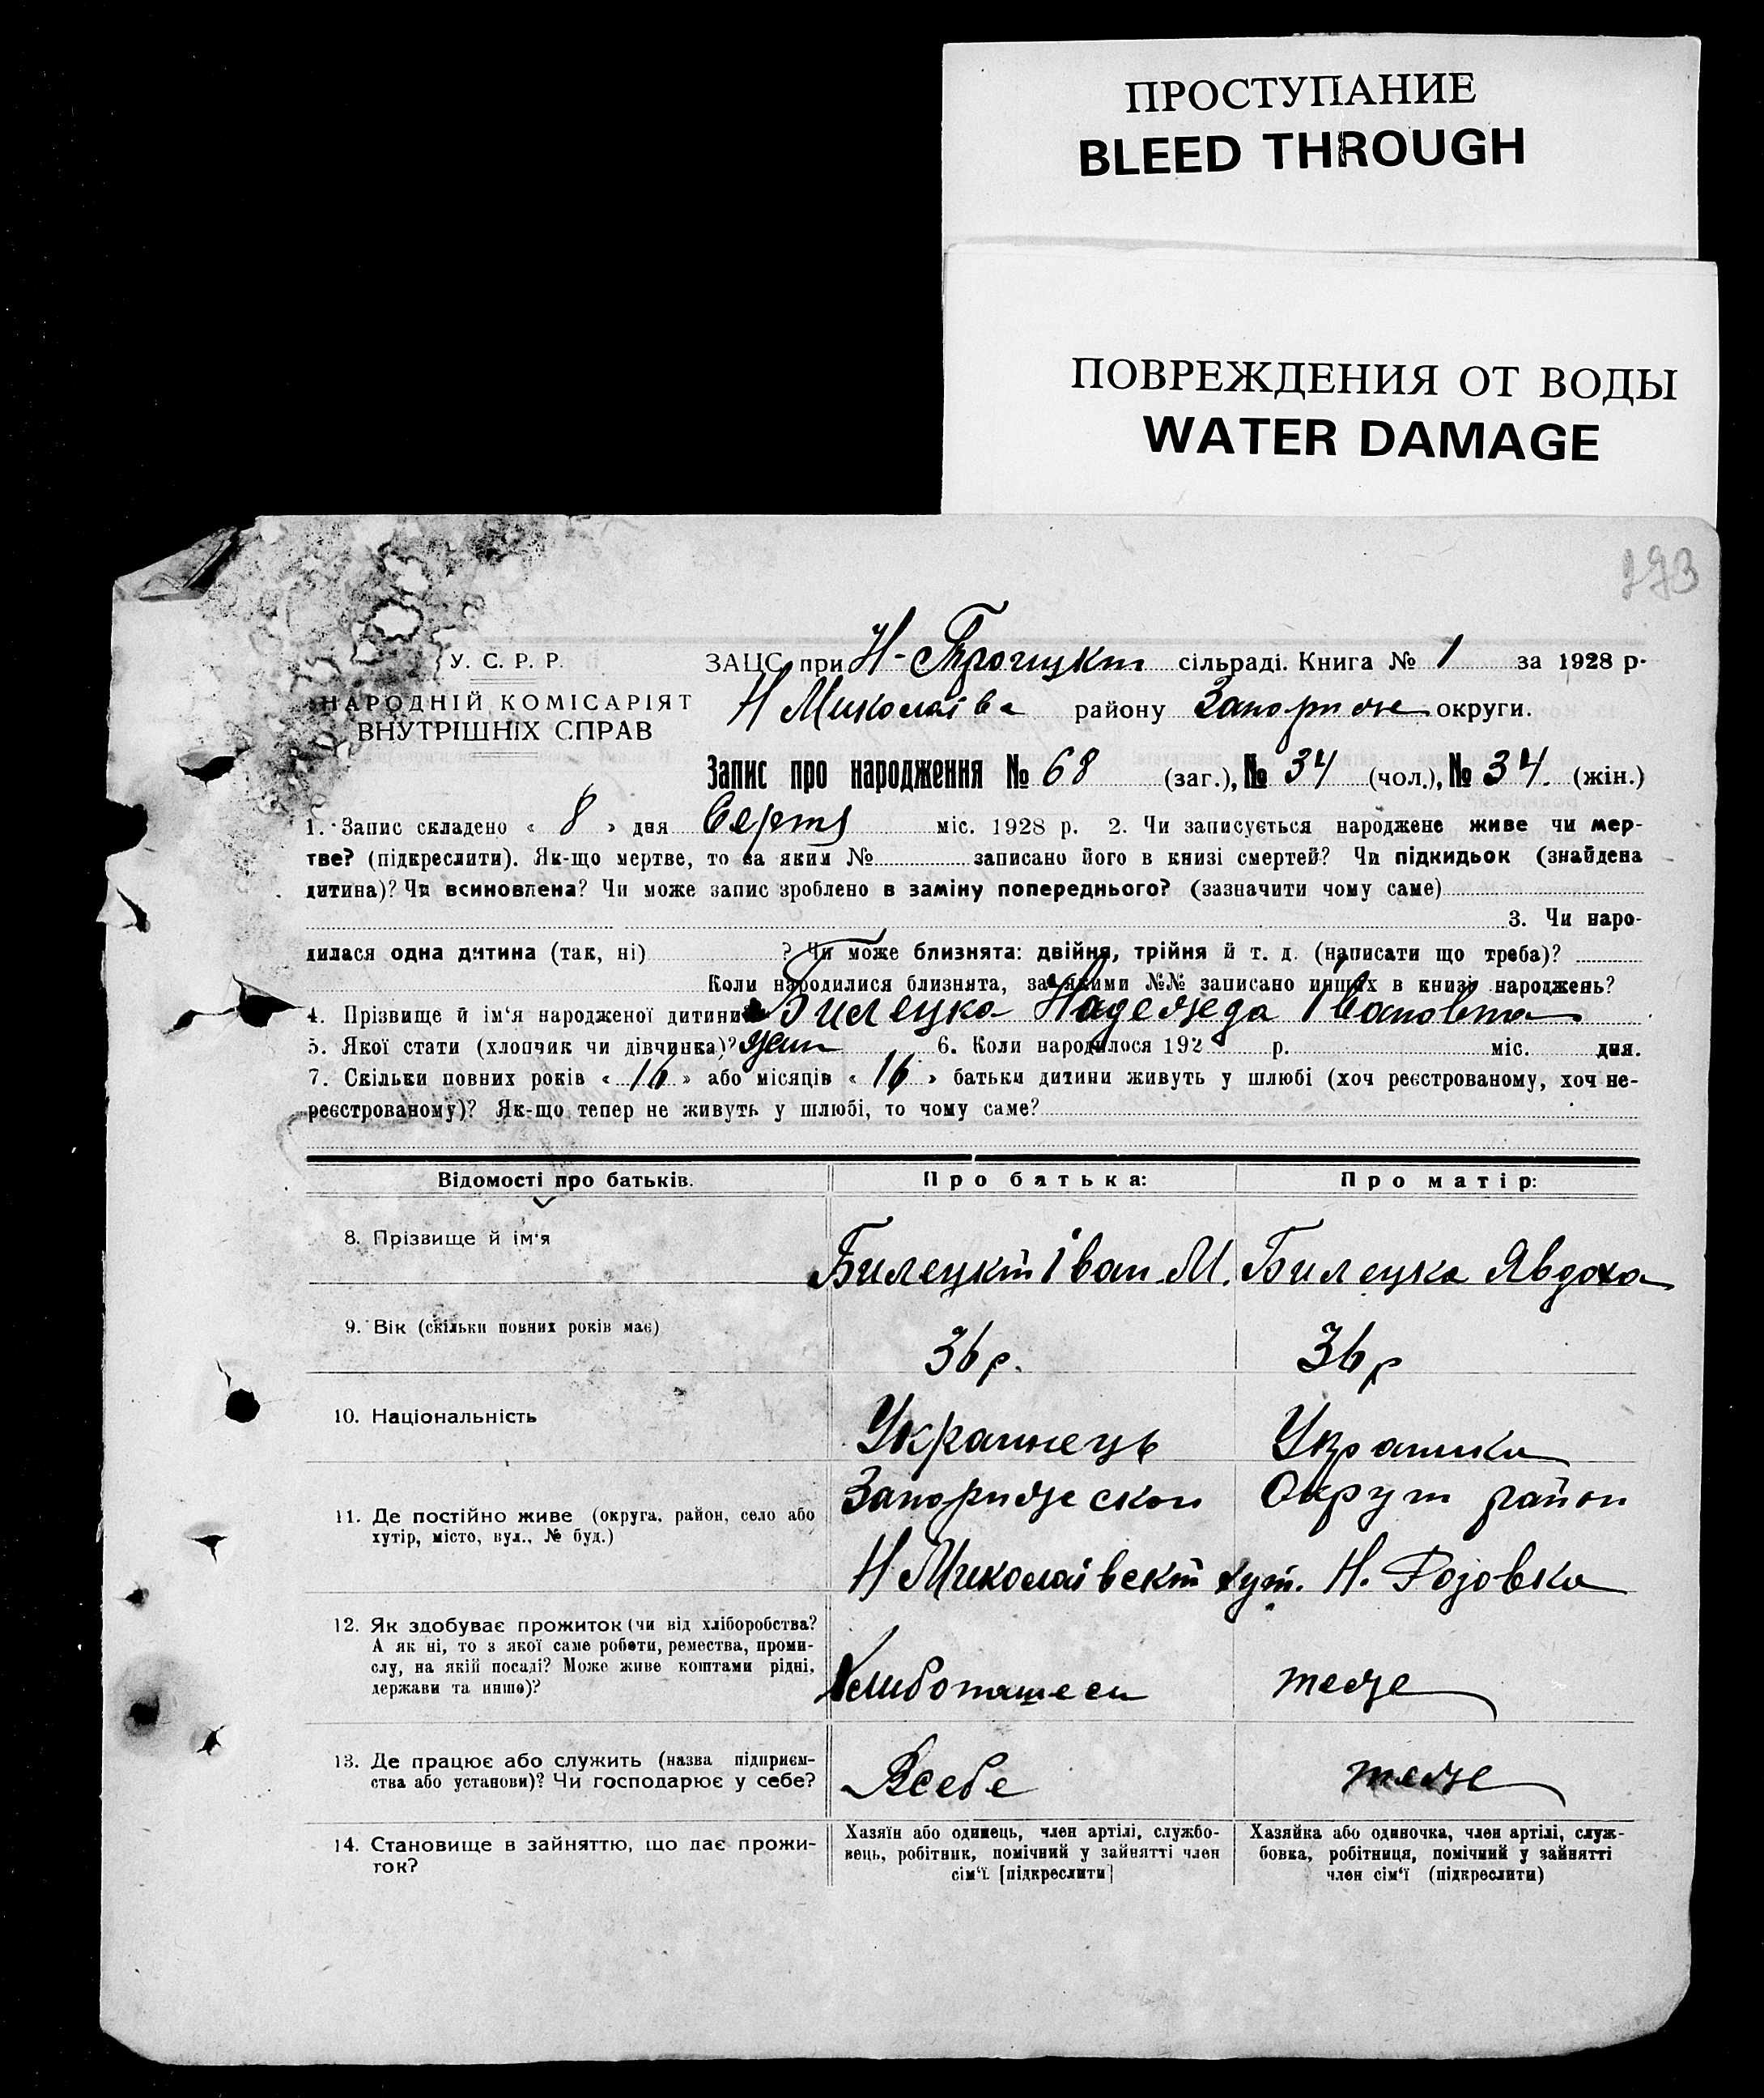 ПРОСТУПАНИЕ
BLEED THROUGH
ПОВРЕЖДЕНИЯ ОТ ВОДЫ
WATER DAMAGE
193
У. С. Р. Р.
НАРОДНІЙ КОМІСАРІЯТ
ВНУТРІШНІХ СПРАВ
ЗАЦС при Н-Троицкій сільраді. Книга № 1 за 1928 р.
Н Миколаївс району Запориже округи.
Запис про народження № 68 (заг.), № 34 (чол.), № 34. (жін.)
1. Запис складено « 8 » дня міс. 1928 р. 2. Чи записується народжене живе чи мер-
тве? (підкреслити). Як-що мертве, то за яким № записано його в книзі смертей? Чи підкидьок (знайдена
дитина)? Чи всиновлена? Чи може запис зроблено в заміну попереднього? (зазначити чому саме)
3. Чи наро-
дилася одна дитина (так, ні) ? Чи може близнята: двійня, трійня й т. д. (написати що треба)?
Коли народилися близнята, за якими №№ записано инших в книзі народжень?
4. Прізвище й ім'я народженої дитини Билецка Надежда Івановна
5. Якої стати (хлопчик чи дівчинка)? жен 6. Коли народилося 192 р. міс. дня.
7. Скільки повних років « 16 » або місяців « 16 » батьки дитини живуть у шлюбі (хоч реєстрованому, хоч не-
реєстрованому)? Як-що тепер не живуть у шлюбі, то чому саме?
Відомості про батьків. Про батька: Про матір:
8. Прізвище й ім'я Билецкій Іван М. Билецка Явдоха
9. Вік (скільки повних років має) 36 р. 36 р
10. Національність Украинець Украинка
11. Де постійно живе (округа, район, село або
хутір, місто, вул., № буд.)
Запорижескои Округи район
Н Миколаївскій хут. Н. Розовка
12. Як здобуває прожиток (чи від хліборобства?
А як ні, то з якої саме роботи, ремества, проми-
слу, на якій посаді? Може живе коштами рідні,
держави та инше)?
теже
13. Де працює або служить (назва підприєм-
ства або установи)? Чи господарює у себе?
Всебе теже
14. Становище в зайняттю, що дає прожи-
ток?
Хазяїн або одинець, член артілі, службо-
вець, робітник, помічний у зайнятті член
сім'ї. [підкреслити]
Хазяйка або одиночка, член артілі, служ-
бовка, робітниця, помічний у зайнятті
член сім'ї (підкреслити)